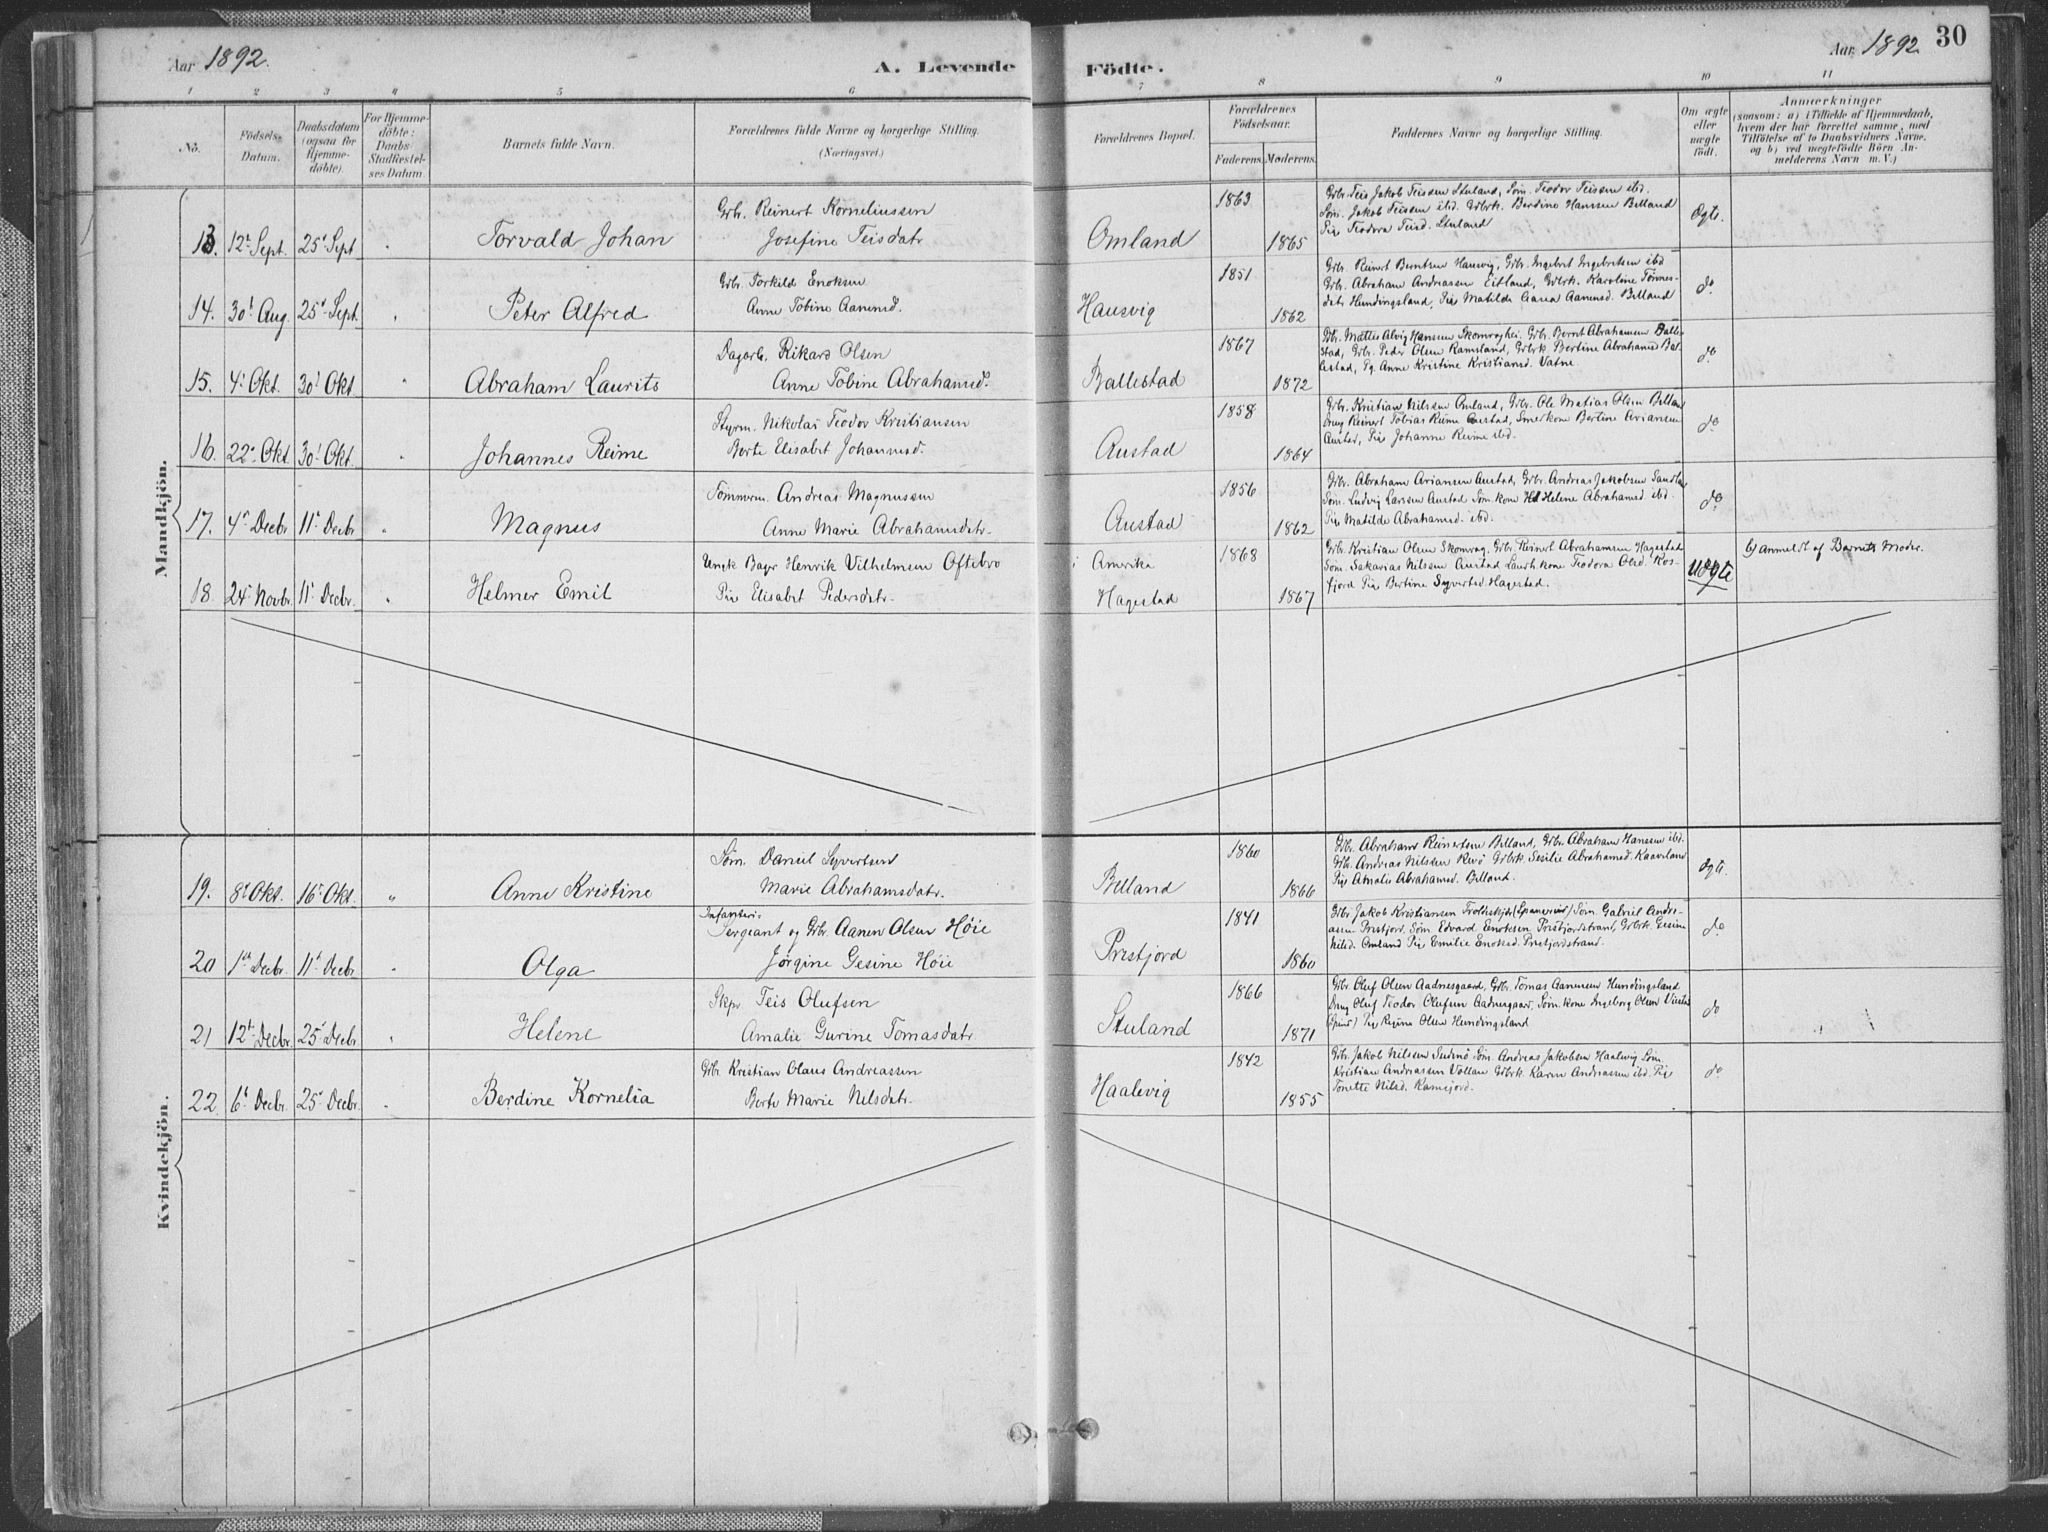 Aar 1892.
A. Levende Födte.
Aar 1892
30
1 2 3 4 5 6 7 8 9 10 11
No.
Födsels-Datum.
Daabsdatum (ogsaa for Hjemmedöbte)
For Hjemmedöbte: Daabs-Stadfestelses Datum.
Barnets fulde Navn.
Forældrenes fulde Navne og borgerlige Stilling.
(Næringsvei.)
Forældrenes Bopæl.
Forældrenes Födselsaar.
Faderens. Moderens.
Faddernes Navne og borgerlige Stilling.
Om ægte eller uægte födt.
Anmærkninger
(saasom: a) i Tilfælde af Hjemmedaab,
hvem der har forrettet samme, med
Tilföielse af to Daabsvidners Navne.
og b) ved uægtefödte Börn Anmelderens Navn m. V.)
Mandkjön.
13. 12t Sept. 25t Sept " Torvald Johan
Grbr. Reinert Korneliussen
Josefine Teisdatr
Omland 1863 1865
Grbr. Teis Jakob Teissen Stuland, Søm. Teodor Teissen ibd.
Søm. Jakob Teissen ibd. Grbrk. Berdine Hanssen Billand
Pige Teodora Teisd. Stuland
Ægte.
14. 30t Aug. 25t Sept. " Peter Alfred
Grbr. Torkild Enoksen
Anne Tobine Aanensd.
Hausvig 1851 1862
Grbr. Reinert Berntsen Hausvig, Grbr. Ingebret Ingebretsen ibd
Grbr. Abraham Andreassen Eitland, Grbrk. Karoline Tønnes-
datr Hundingsland, Pige Matilde Aanensd. Billand
do
15. 4t Okt. 30t Okt. " Abraham Laurits
Dagarb. Rikard Olsen
Anne Tobine Abrahamsd.
Ballestad 1867 1872
Grbr. Mattes Alvig Hansen Skomraghei. Grbr. Bernt Abrahamsen Balle-
stad, Grbr. Peder Olsen Ramsland, Grbrk Bertine Abrahamsd Bal-
lestad, Pg. Anne Kristine Kristiansd. Vatne.
do
16. 22t Okt. 30t Okt. " Johannes Reime
Styrm. Nikolai Teodor Kristiansen
Berte Elisabet Johannesd.
Austad 1858 1864
Grbr. Kristian Nilssen Omland, Grbr. Ole Matias Olsen Billand
Ung Reinert Tobias Reime Austad, Smedkone Bertine Ariansen
Austad, Pige Johanne Reime ibd.
do
17. 4t Decbr 11t Decbr " Magnus
Tømmerm. Andreas Magnussen
Anne Marie Abrahamsdatr.
Austad 1856 1862
Grbr. Abraham Ariansen Austad, Grbr. Andreas Jakobsen
Søm. Ludvig Larssen Austad Søm. kone Helene Abrahamsd ibd.
Pige Matilde Abrahamsd. ibd.
do
18. 24t Novbr. 11t Decbr. " Helmer Emil
Ungk Henrik Vilhelmsen Oftebro
Pige Elisabet Pedersdatr.
i Amerika
Hagestad 1868 1867
Grbr. Kristian Olsen Skomrag, Grbr. Reinert Abrahamsen Hagestad
Søm. Sakarias Nilssen Austad Teodora Olsd. Ros-
fjord Pige Bertine Syvertsd. Hagestad.
Uægte
b) anmeldt af Barnets Moder.
Kvindekjön.
19. 8t Okt. 16t Okt. " Anne Kristine
Søm. Daniel Syvertsen
Marie Abrahamsdatr.
Billand 1860 1866
Grbr. Abraham Reinertsen Billand, Grbr. Abraham Hanssen ibd.
Grbr. Andreas Nilssen Revø Grbrk. Sesilie Abrahamsd. Kaaveland
Pige Amalie Abrahamsd. Billand.
Ægte.
20 1st Decbr. 11t Decbr. " Olga
Infanteri-
Sergeant og Grbr. Aanen Olsen Høie
Jørgine Gesine Høie
Prestjord 1841 1860
Grbr. Jakob Kristiansen (Spangereid) Søm. Gabriel Andre-
assen Prestjord. Søm. Edvard Enoksen Prestjordstrand, Grbrk. Gesine
Nilsd. Omland Pige Emilie Enoksd. Prestjordstrand.
do
21 12t Decbr. 25t Decbr " Helene
Skpr. Teis Olufsen
Amalie Gurine Tomasdatr
Stuland 1866 1871
Grbr. Oluf Olsen Aadnesgaard, Grbr. Tomas Aanensen Hundingsland
Ung Oluf Teodor Olufsen Aadnesgaard, Søm. kone Ingeborg Olsen
Pige Regine Olsen Hundingsland
do
22 6t Decbr. 25t Decbr. " Berdine Kornelia
Grbr. Kristian Olaus Andreassen
Berte Marie Nilsdatr.
Haalevig 1842 1855
Grbr. Jakob Nilssen Søm. Andreas Jakobsen Haalevig Søm.
Kristian Andreassen Vollan Grbrk. Karen Andreassen ibd. Pige
Tonette Nilsd. Ramsfjord.
do